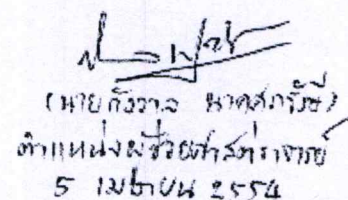 (นายกังวาล นาคศุภรังษี)
ตำแหน่งผู้ช่วยศาสตราจารย์
5 เมษายน 2554